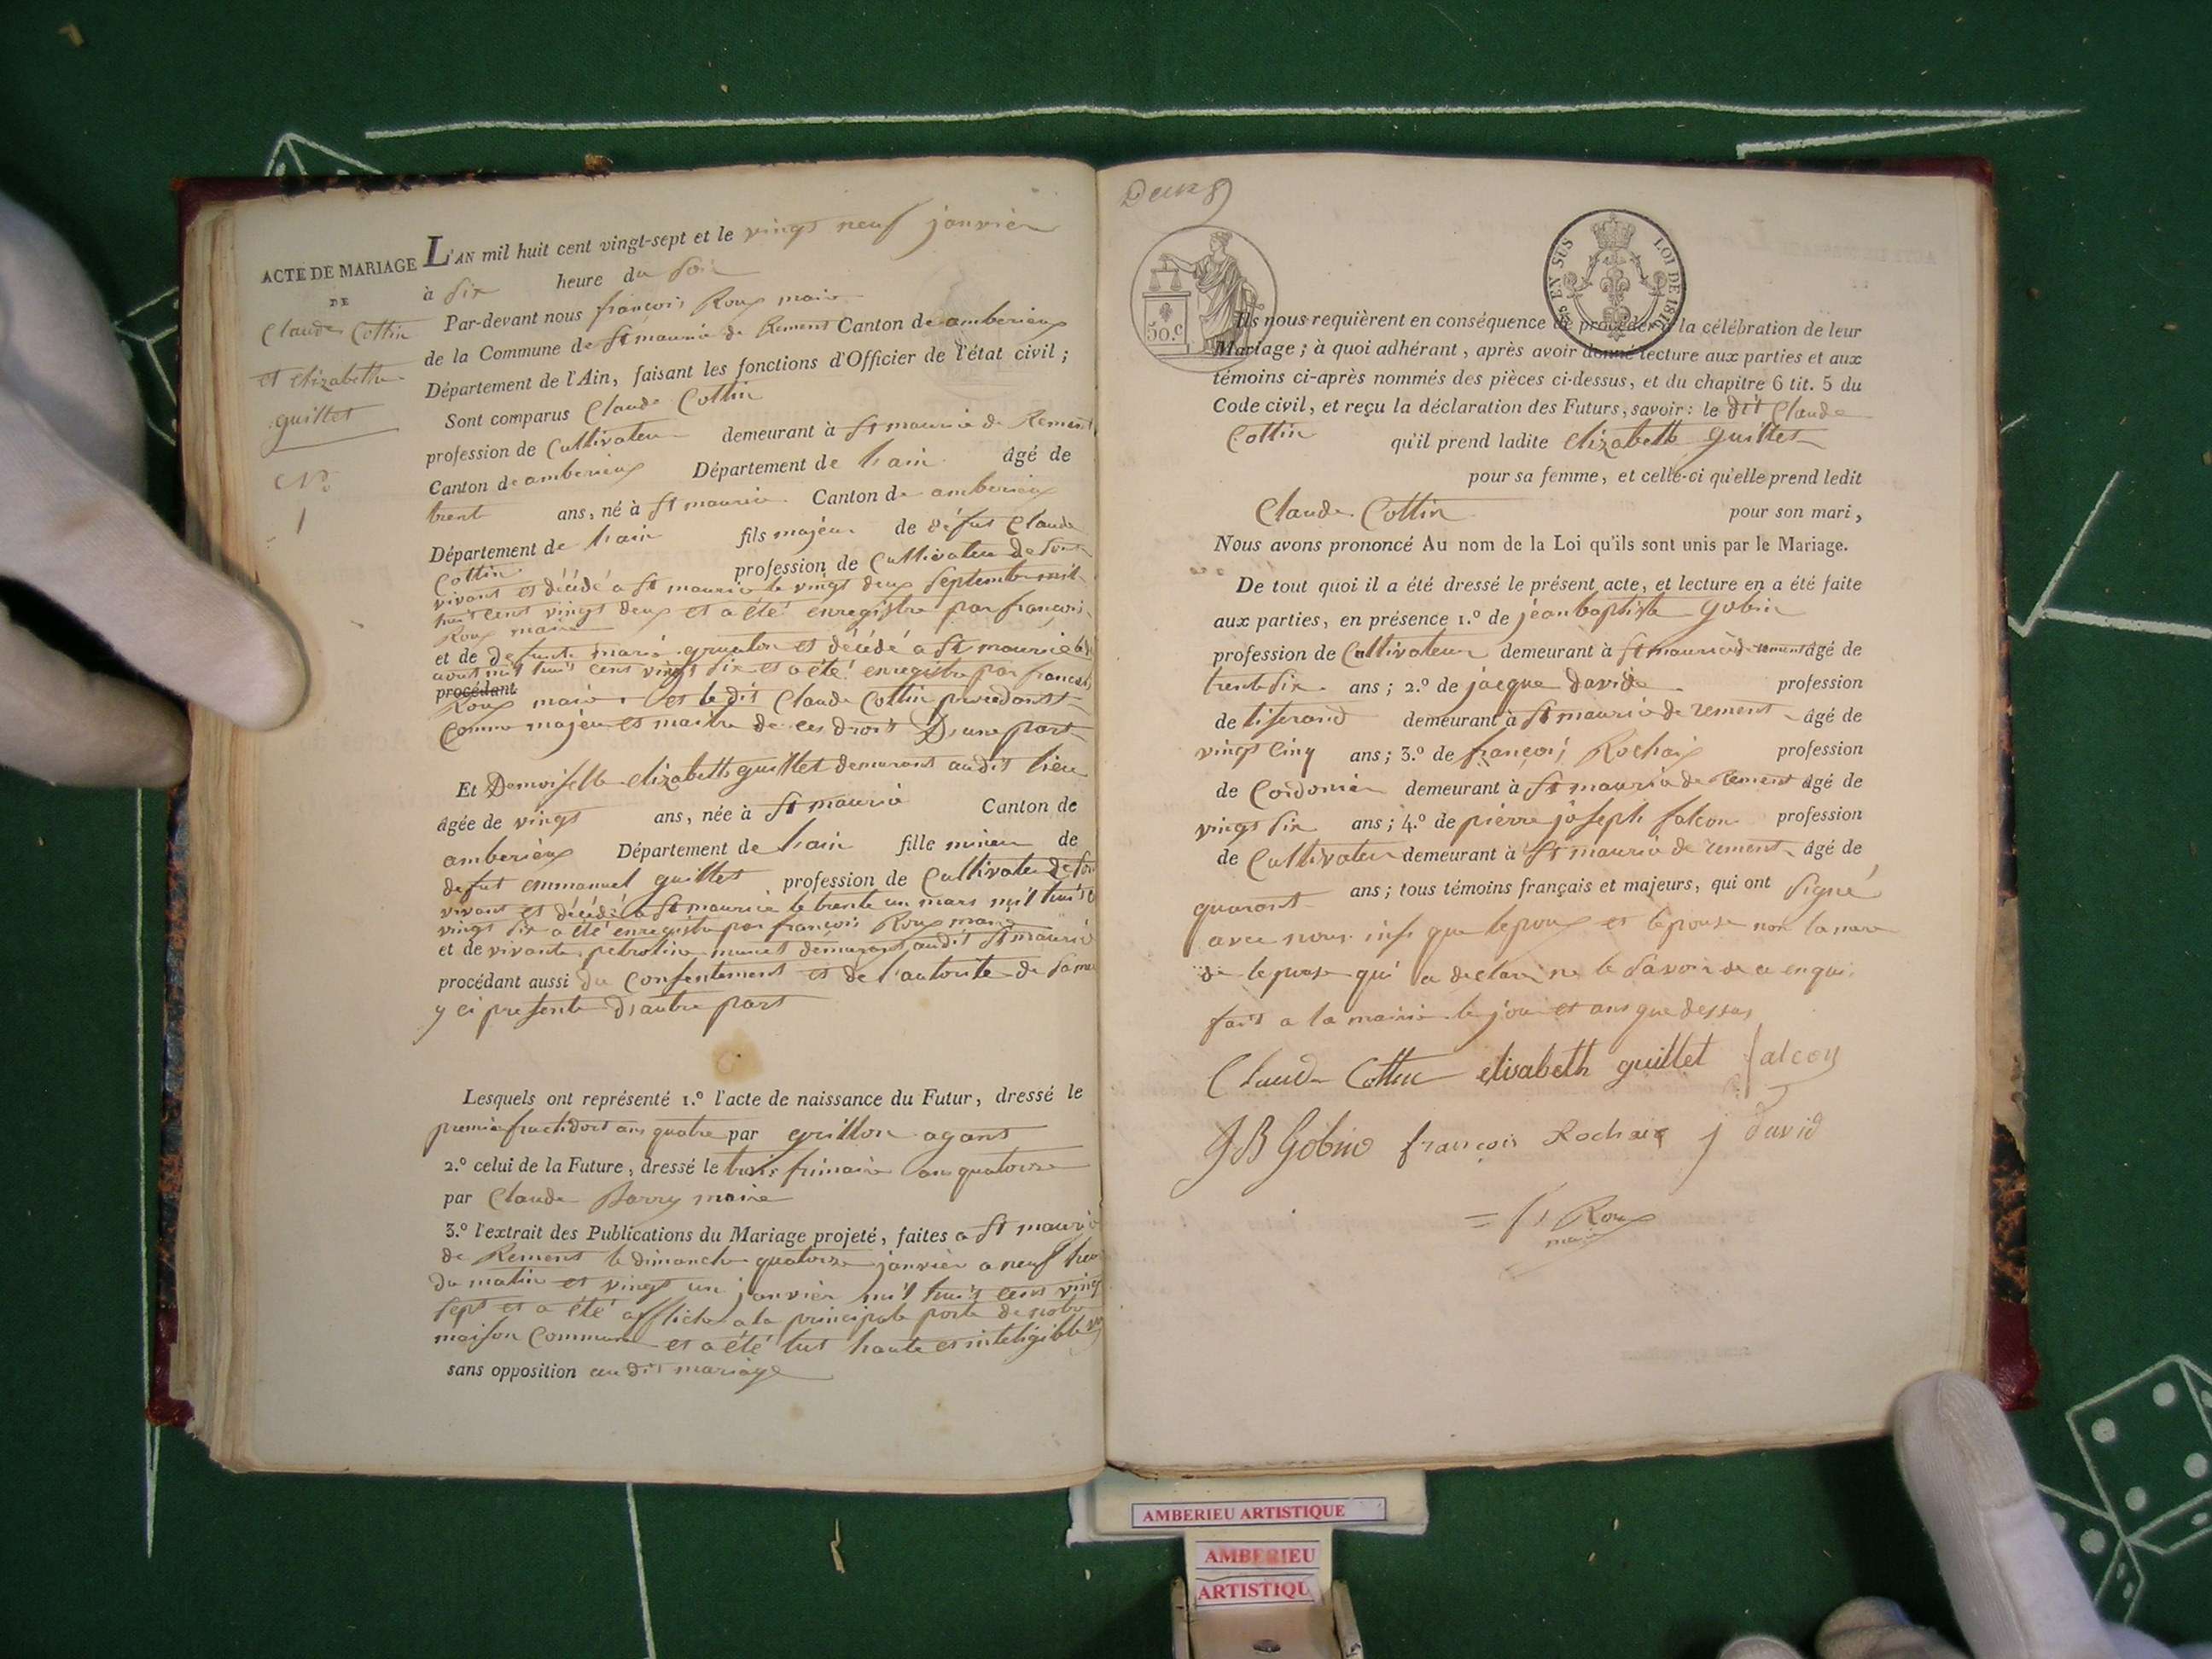 ACTE DE MARIAGE
DE
Claude Cottin
et elizabeth
guillet
No
1
L'AN mil huit cent vingt-sept et le vingt neuf janvier
à six heure du soir
Par-devant nous françois Roux maire
de la Commune de St maurice de Rement Canton de amberieux
Département de l'Ain, faisant les fonctions d'Officier de l'état civil ;
Sont comparus Claude Cottin
profession de Cultivateur demeurant à St maurice de Rement
Canton de amberieux Département de lain âgé de
trent ans, né à St maurice Canton de amberieux
Département de lain fils majeur de défut Claude
Cottin profession de Cultivateur de son
vivant et décédé a St maurice le vingt deux septembre mil
huit cent vingt deux et a été enregistre par françois
Roux maire
et de defunte marie et décédé a St maurice le
aout mil huit cent vingt six et a été enregistre par francois
procédant
Roux maire et le dit Claude Cottin procedant
Comme majeur et maitre de ces droit D'une part
Et Demoiselle elizabeth guillet demeurant audit lieu
âgée de vingt ans, née à St maurice Canton de
amberieux Département de lain fille mineur de
defut emmanuel guillet profession de Cultivateur de son
vivant et décédé a St maurice le trente un mars mil huit c
vingt six a été enregistre par francois Roux maire
et de vivante petroline demeurant audit St maurice
procédant aussi du Consentement et de l'autorite de sa mer
y ci presente d'autre part
Lesquels ont représenté 1.º l'acte de naissance du Futur, dressé le
premier fructidort ans quatre par grillon agant
2.º celui de la Future, dressé le trois frimaire an quatorze
par Claude Barry maire
3.º l'extrait des Publications du Mariage projeté, faites a St mauri
de Rement le dimanche quatorze janvier a neuf heu
du matin et vingt un janvier mil huit cent vingt
sept et a été affiche a la principale porte de notre
maison Commune et a été lut haute et inteligible
sans opposition au dit mariage
Deux
50.c
25 EN SUS
LOI DE 1816
Ils nous requièrent en conséquence de procéder à la célébration de leur
Mariage ; à quoi adhérant, après avoir donné lecture aux parties et aux
témoins ci-après nommés des pièces ci-dessus, et du chapitre 6 tit. 5 du
Code civil, et reçu la déclaration des Futurs, savoir : le dit Claude
Cottin qu'il prend ladite elizabeth guillet
pour sa femme, et celle-ci qu'elle prend ledit
Claude Cottin pour son mari,
Nous avons prononcé Au nom de la Loi qu'ils sont unis par le Mariage.
De tout quoi il a été dressé le présent acte, et lecture en a été faite
aux parties, en présence 1.º de jean baptiste gobin
profession de Cultivateur demeurant à St maurice de rement âgé de
trente six ans ; 2.º de jacque davide profession
de tiserand demeurant à St maurice de rement âgé de
vingt cinq ans ; 3.º de françois Rochaix profession
de Cordonier demeurant à St maurice de Rement âgé de
vingt six ans ; 4.º de pierre joseph falcon profession
de Cultivateur demeurant à St maurice de rement âgé de
quarant ans ; tous témoins français et majeurs, qui ont signé
avec nous insi que lepoux et lepouse non la mere
de lepouse qui a declare ne le savoir de ce enqui
fait a la mairie le jour et ans que dessus
Claude Cottin elisabeth guillet falcon
JB Gobin françois Rochaix j david
= fs Roux
maire
AMBERIEU ARTISTIQUE
AMBERIEU
ARTISTIQU